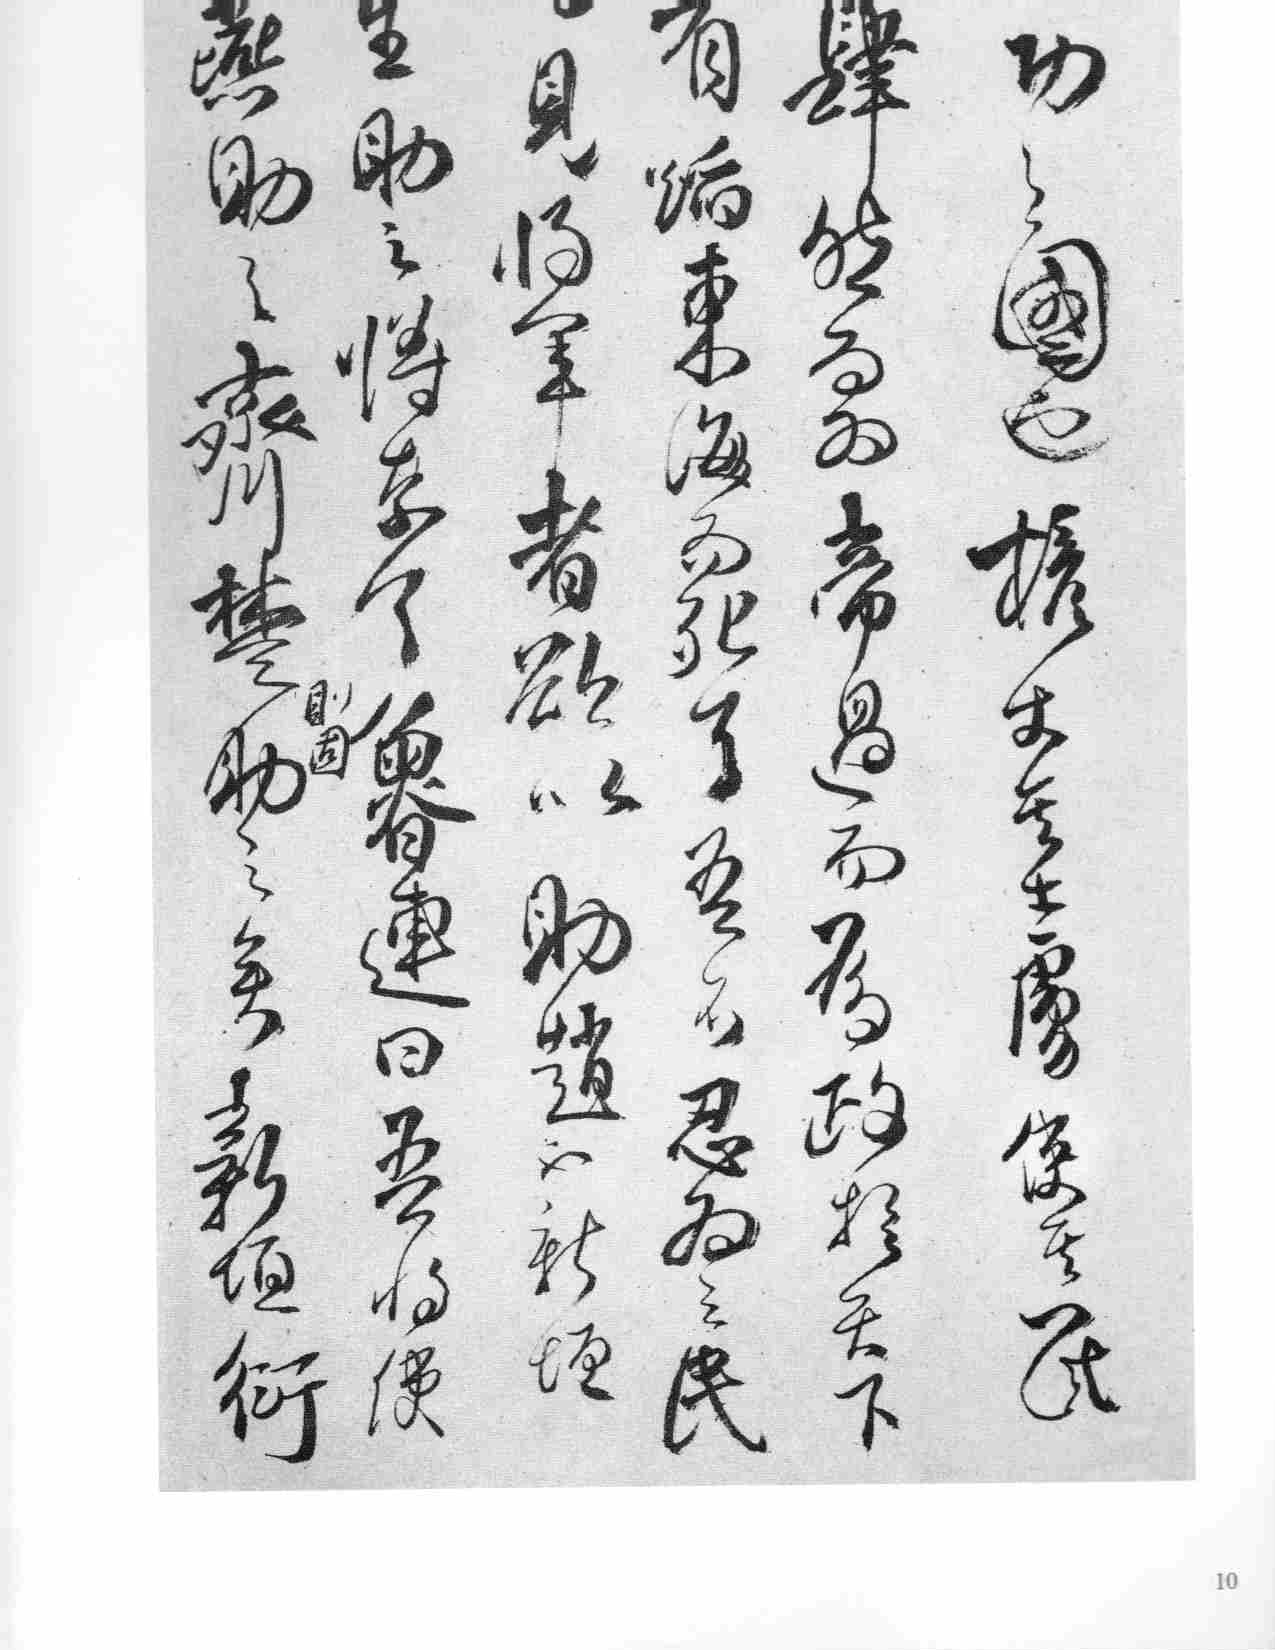 功之國也權使其士虜使其民
肆然而為帝過而為政於天下
有蹈東海而死耳吾不忍為之民
見將軍者欲以助趙也新垣
生助之將奈何魯連曰吾將使
燕助之齊楚則固助之矣新垣衍
10